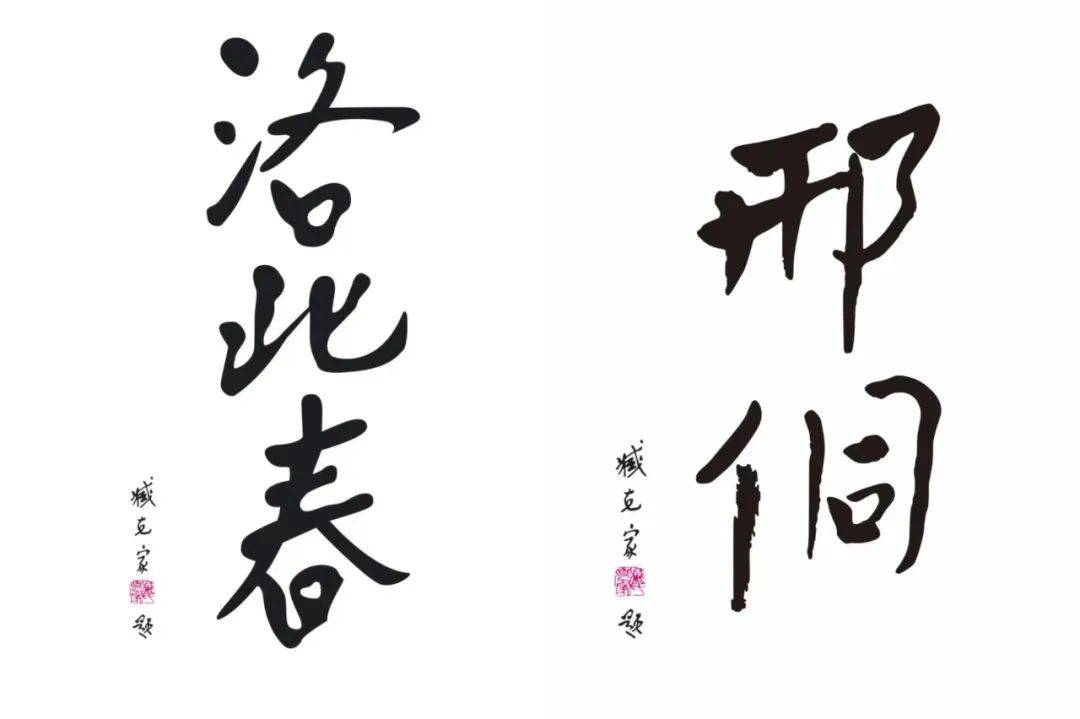 洛北春
臧克家
题
邢侗
臧克家
题